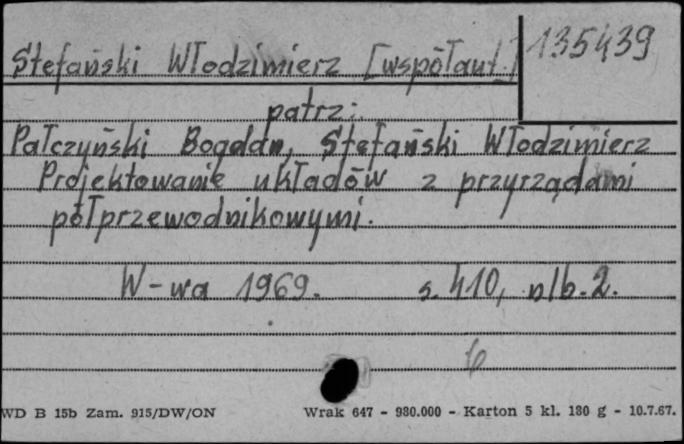 Stefański Włodzimierz [współaut.] 135439
patrz:
Pałczyński Bogdan, Stefański Włodzimierz
Projektowanie układów z przyrządami
półprzewodnikowymi.
W-wa 1969. s. 410, nlb. 2.
b
WD B 15b Zam. 915/DW/ON Wrak 647 - 980.000 - Karton 5 kl. 180 g - 10.7.67.